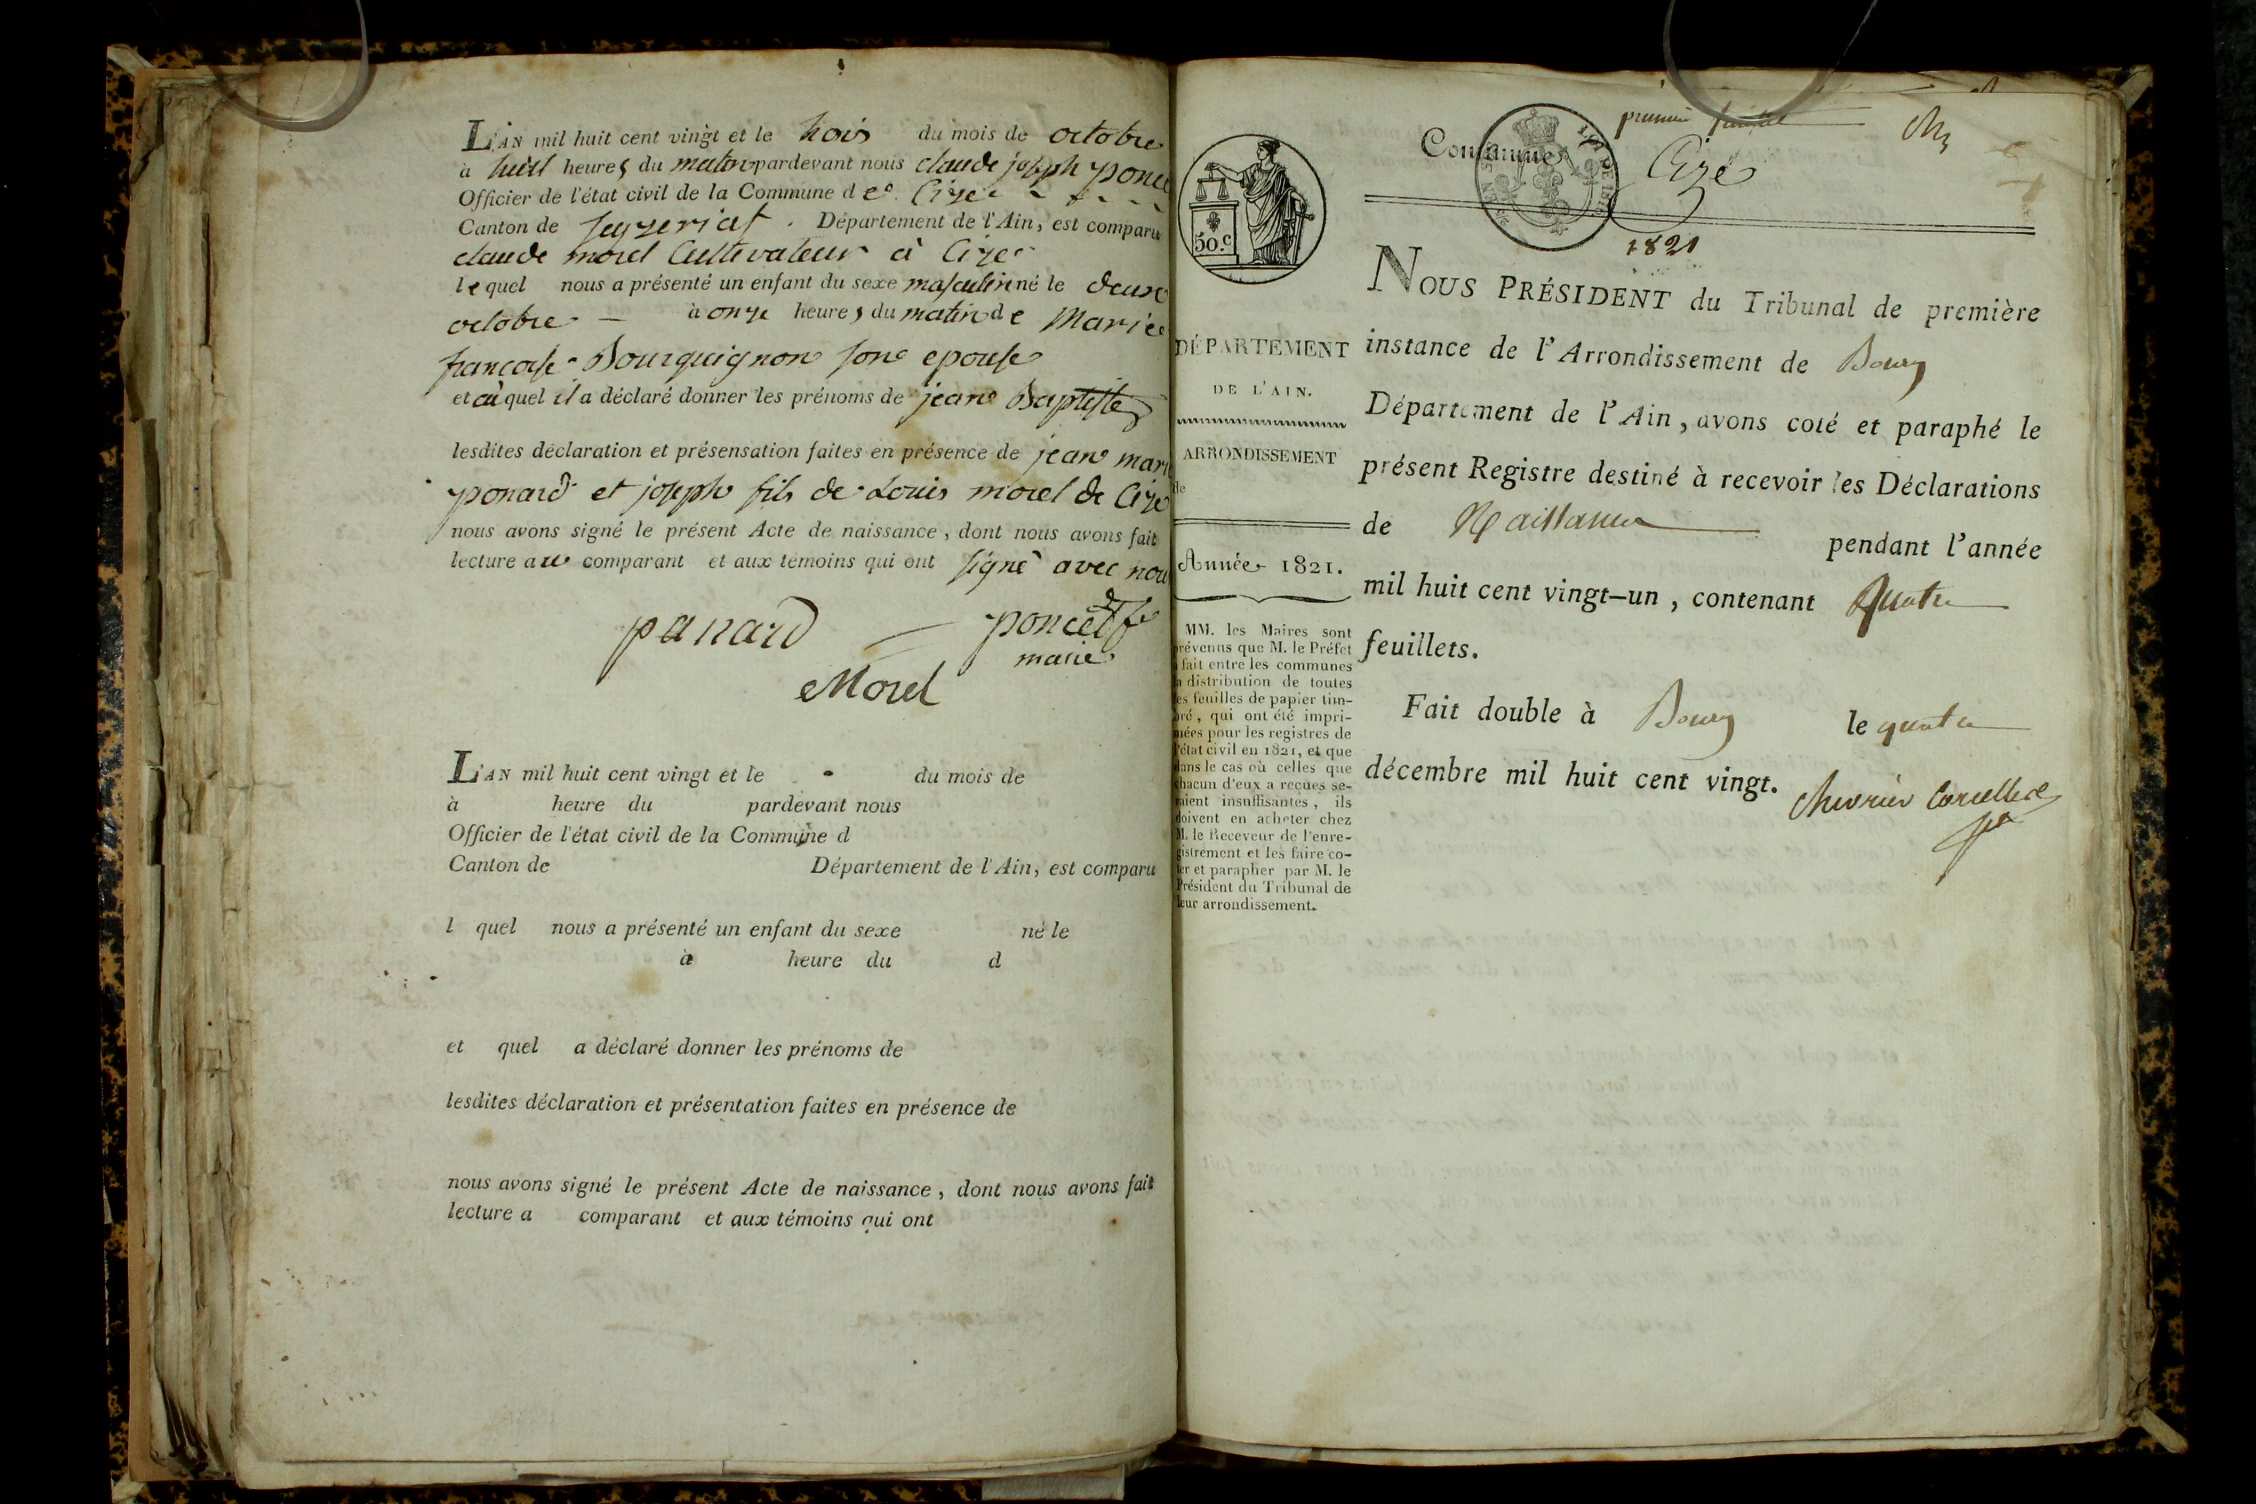 L'AN mil huit cent vingt et le trois du mois de octobre
à huit heures du matin pardevant nous claude joseph ponce
Officier de l'état civil de la Commune de Cize
Canton de Seyzeriat. Département de l'Ain, est comparu
claude morel Cultivateur à Cize
lequel nous a présenté un enfant du sexe masculin né le deux
octobre — à onze heures du matin de Marie
francoise Bourguignon son epouse
et auquel il a déclaré donner les prénoms de jean Baptiste
lesdites déclaration et présensation faites en présence de jean mari
ponard et joseph fils de Louis morel de Cize
nous avons signé le présent Acte de naissance, dont nous avons fait
lecture au comparant et aux témoins qui ont signé avec nou
panard poncet
maire
Morel
L'AN mil huit cent vingt et le du mois de
à heure du pardevant nous
Officier de l'état civil de la Commune d
Canton de Département de l'Ain, est comparu
l quel nous a présenté un enfant du sexe né le
à heure du d
et quel a déclaré donner les prénoms de
lesdites déclaration et présentation faites en présence de
nous avons signé le présent Acte de naissance, dont nous avons fait
lecture a comparant et aux témoins qui ont
50.c
DÉPARTEMENT
DE L'AIN.
ARRONDISSEMENT
de
Année 1821.
MM. les Maires sont
prévenus que M. le Préfet
a fait entre les communes
la distribution de toutes
les feuilles de papier tim-
bré, qui ont été impri-
mées pour les registres de
l'état civil en 1821, et que
dans le cas où celles que
chacun d'eux a reçues se-
raient insuffisantes, ils
doivent en acheter chez
M. le Receveur de l'enre-
gistrement et les faire co-
ter et parapher par M. le
Président du Tribunal de
leur arrondissement.
premier feuillet
Commune Cize
1821
NOUS PRÉSIDENT du Tribunal de première
instance de l'Arrondissement de Bourg
Département de l'Ain, avons coté et paraphé le
présent Registre destiné à recevoir les Déclarations
de Naissance pendant l'année
mil huit cent vingt-un, contenant Quatre
feuillets.
Fait double à Bourg le quatre
décembre mil huit cent vingt.